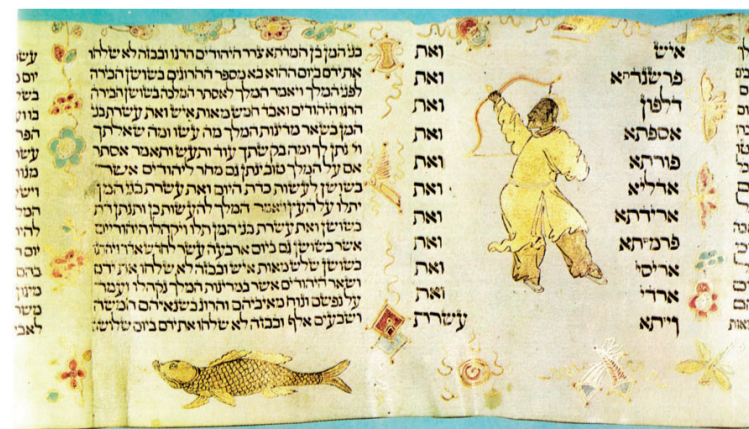 איש ואת
פרשנדתא ואת
דלפון ואת
אספתא ואת
פורתא ואת
אדליא ואת
ארידתא ואת
פרמשתא ואת
אריסי ואת
ארדי ואת
ויזתא עשרת
בני המן בן המדתא צרר היהודים הרגו ובבזה לא שלחו
את ידם ביום ההוא בא מספר ההרוגים בשושן הבירה
לפני המלך ויאמר המלך לאסתר המלכה בשושן הבירה
הרגו היהודים ואבד חמש מאות איש ואת עשרת בני
המן בשאר מדינות המלך מה עשו ומה שאלתך
וינתן לך ומה בקשתך עוד ותעש ותאמר אסתר
אם על המלך טוב ינתן גם מחר ליהודים אשר
בשושן לעשות כדת היום ואת עשרת בני המן
יתלו על העץ ויאמר המלך להעשות כן ותנתן דת
בשושן ואת עשרת בני המן תלו ויקהלו היהודיים
אשר בשושן גם ביום ארבעה עשר לחדש אדר ויהרגו
בשושן שלש מאות איש ובבזה לא שלחו את ידם
ושאר היהודים אשר במדינות המלך נקהלו ועמד
על נפשם ונוח מאיביהם והרוג בשנאיהם חמשה
ושבעים אלף ובבזה לא שלחו את ידם ביום שלושה